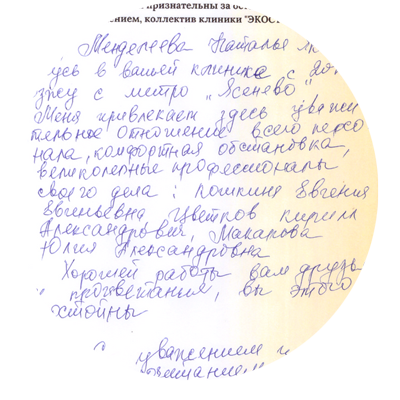 признательны за ос
ением, коллектив клиники "ЭКОС
Менделеева Наталье
усь в вашей клинике с 20
зжу с метро „Ясенево"
Меня привлекает здесь уважи
тельное отношение всего персо
нала, комфортная обстановка,
великолепные профессионалы
своего дела: Пошкине Евгения
Евгеньевна Цветков Кирилл
Александрович, Макарова
Юлия Александровна
Хорошей работы вам друзь
процветания, вы этого
стойны
с уважением и